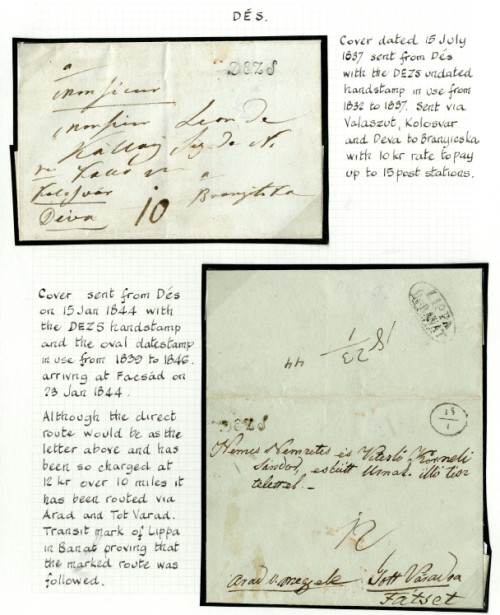 DÉS.
Cover dated 15 July
1837 sent from Dés
with the DEZS undated
handstamp in use from
1832 to 1837. Sent via
Valaszut, Kolosvar
and Deva to Branyicska
with 10 kr rate to pay
up to 15 post stations.
a
Monsieur
DEZS
Monsieur Leon de
Kolosvár
Deva
10
a
Branyitska
Cover sent from Dés
on 15 Jan 1844 with
the DEZS handstamp
and the oval datestamp
in use from 1839 to 1846.
arrivng at Facsád on
23 Jan 1844.
Although the direct
route would be as the
letter above and has
been so charged at
12 kr over 10 miles it
has been routed via
Arad and Tot Varad.
Transit mark of Lippa
in Banat proving that
the marked route was
followed.
LIPPA
BANAT
23
1
44
15
1
DEZS
Nemes Nemzetes és
Sándor,
12
Arad
Fátset